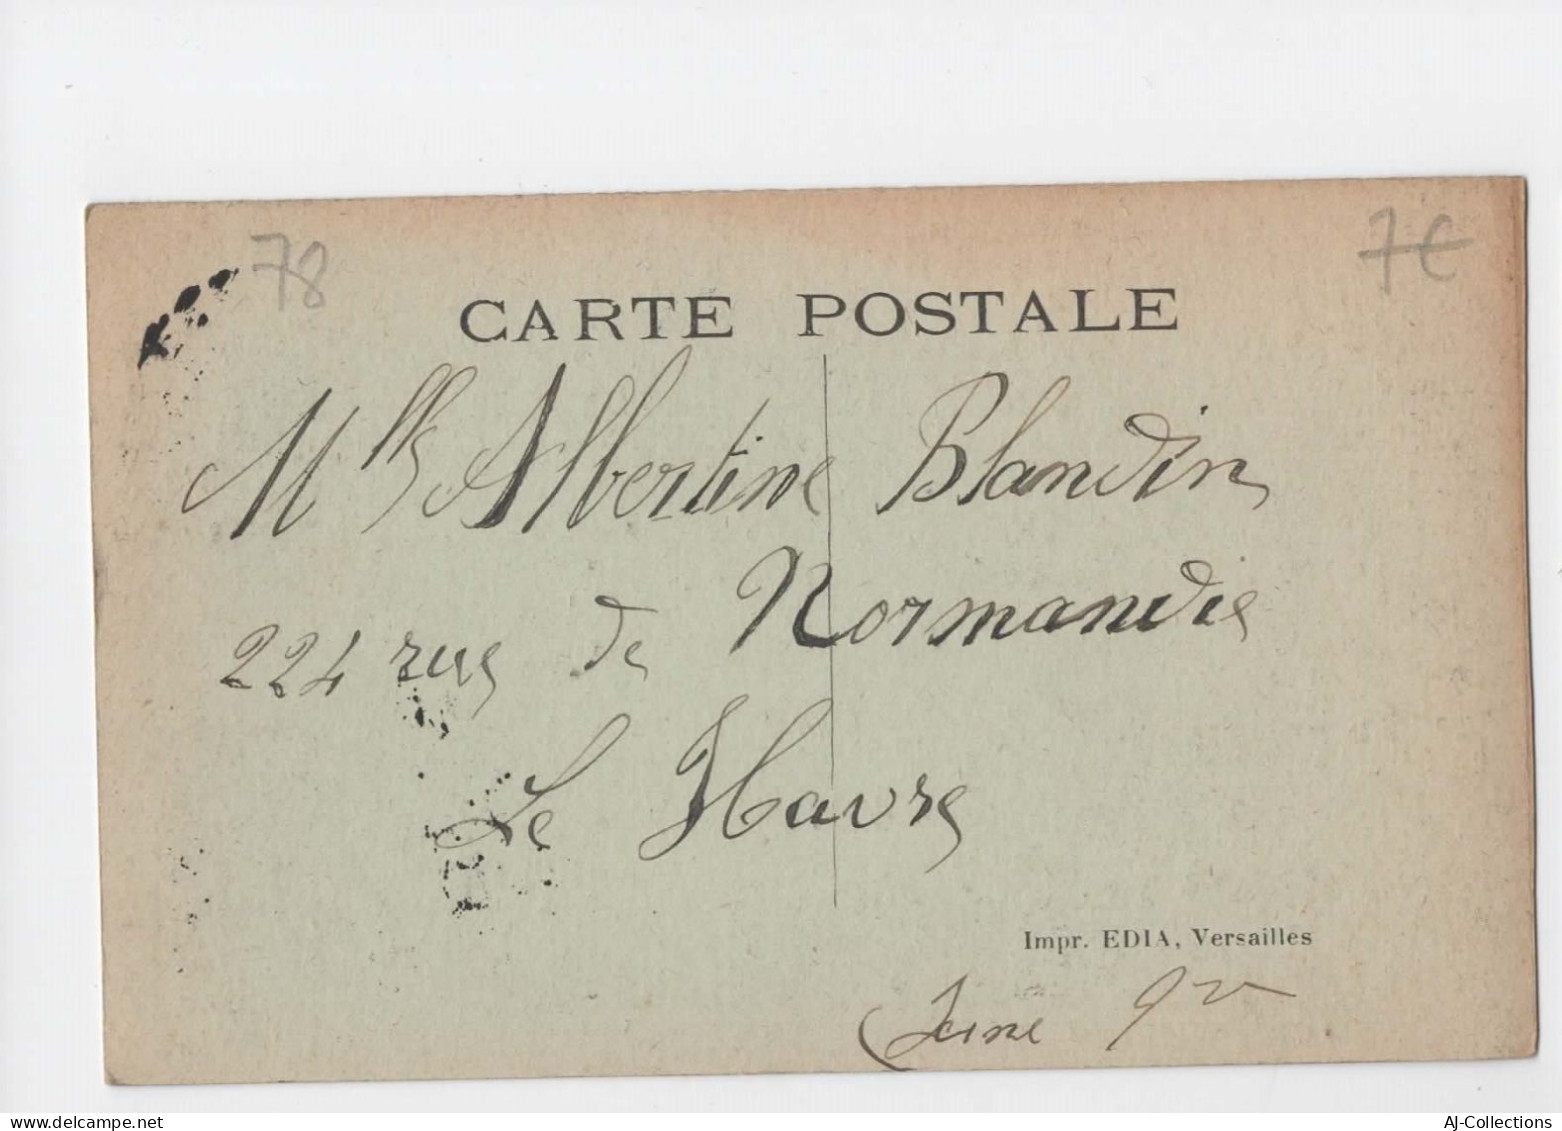 78
7€
CARTE POSTALE
Mlle Albertine Blandin
224 rue de Normandie
Le Havre
Impr. EDIA, Versailles
Seine
AJ-Collections